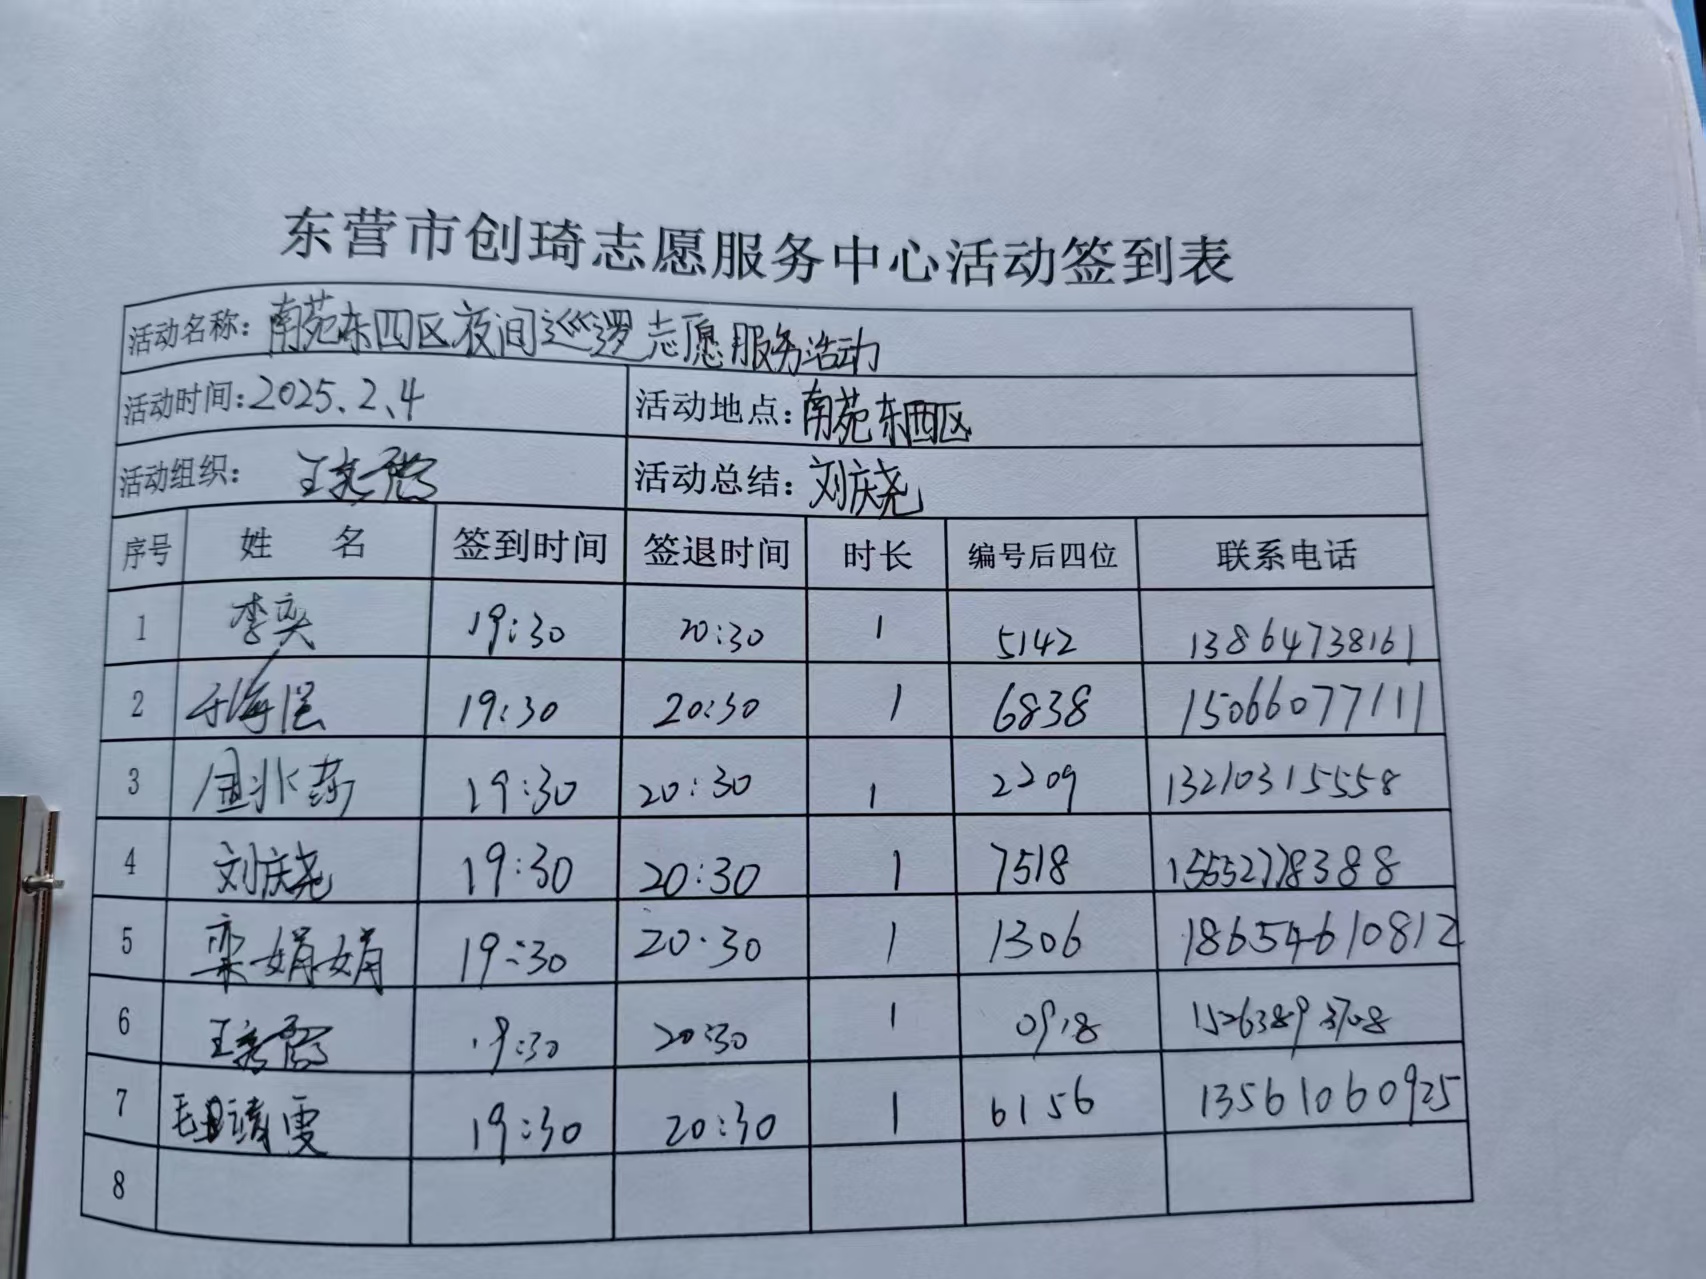 东营市创琦志愿服务中心活动签到表
活动名称：南苑东四区夜间巡逻志愿服务活动
活动时间：2025.2.4 活动地点：南苑东西区
活动组织： 活动总结：刘庆尧
序号 姓 名 签到时间 签退时间 时长 编号后四位 联系电话
1 李奕 19:30 20:30 1 5142 13864738161
2 19:30 20:30 1 6838 15066077111
3 19:30 20:30 1 2209 13210315558
4 刘庆尧 19:30 20:30 1 7518 15552778388
5 栾娟娟 19:30 20:30 1 1306 18654610812
6 19:30 20:30 1 0918 15263893708
7 19:30 20:30 1 6156 13561060925
8